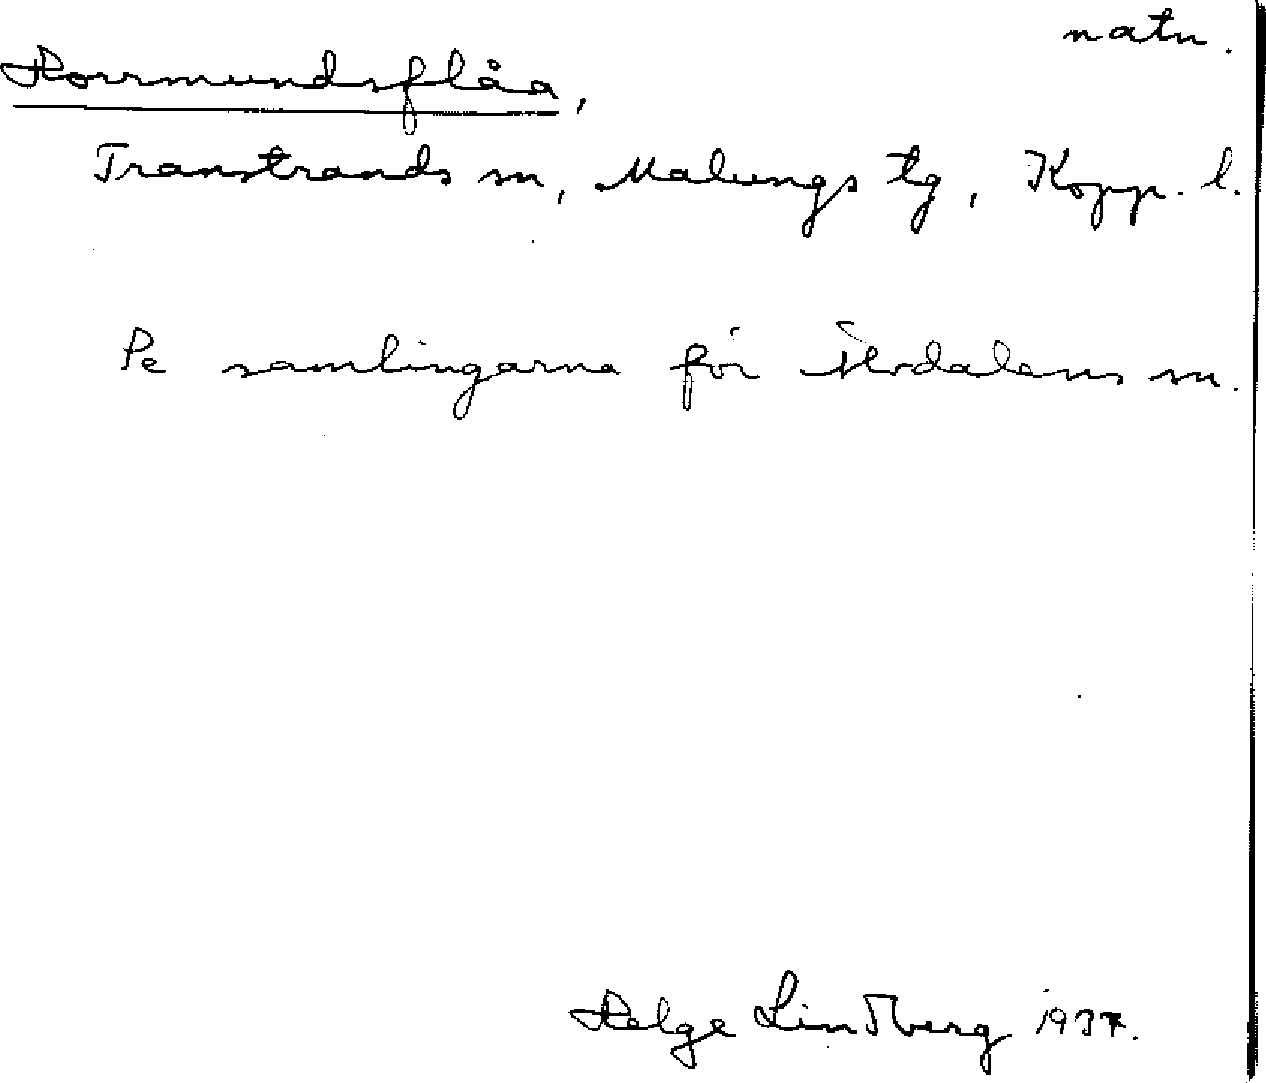 natn.
Hormundsflåa,
Transtrands sn, Malungs tg, Kopp. l.
Se samlingarna för Älvdalens sn.
Helge Lindberg 1937.